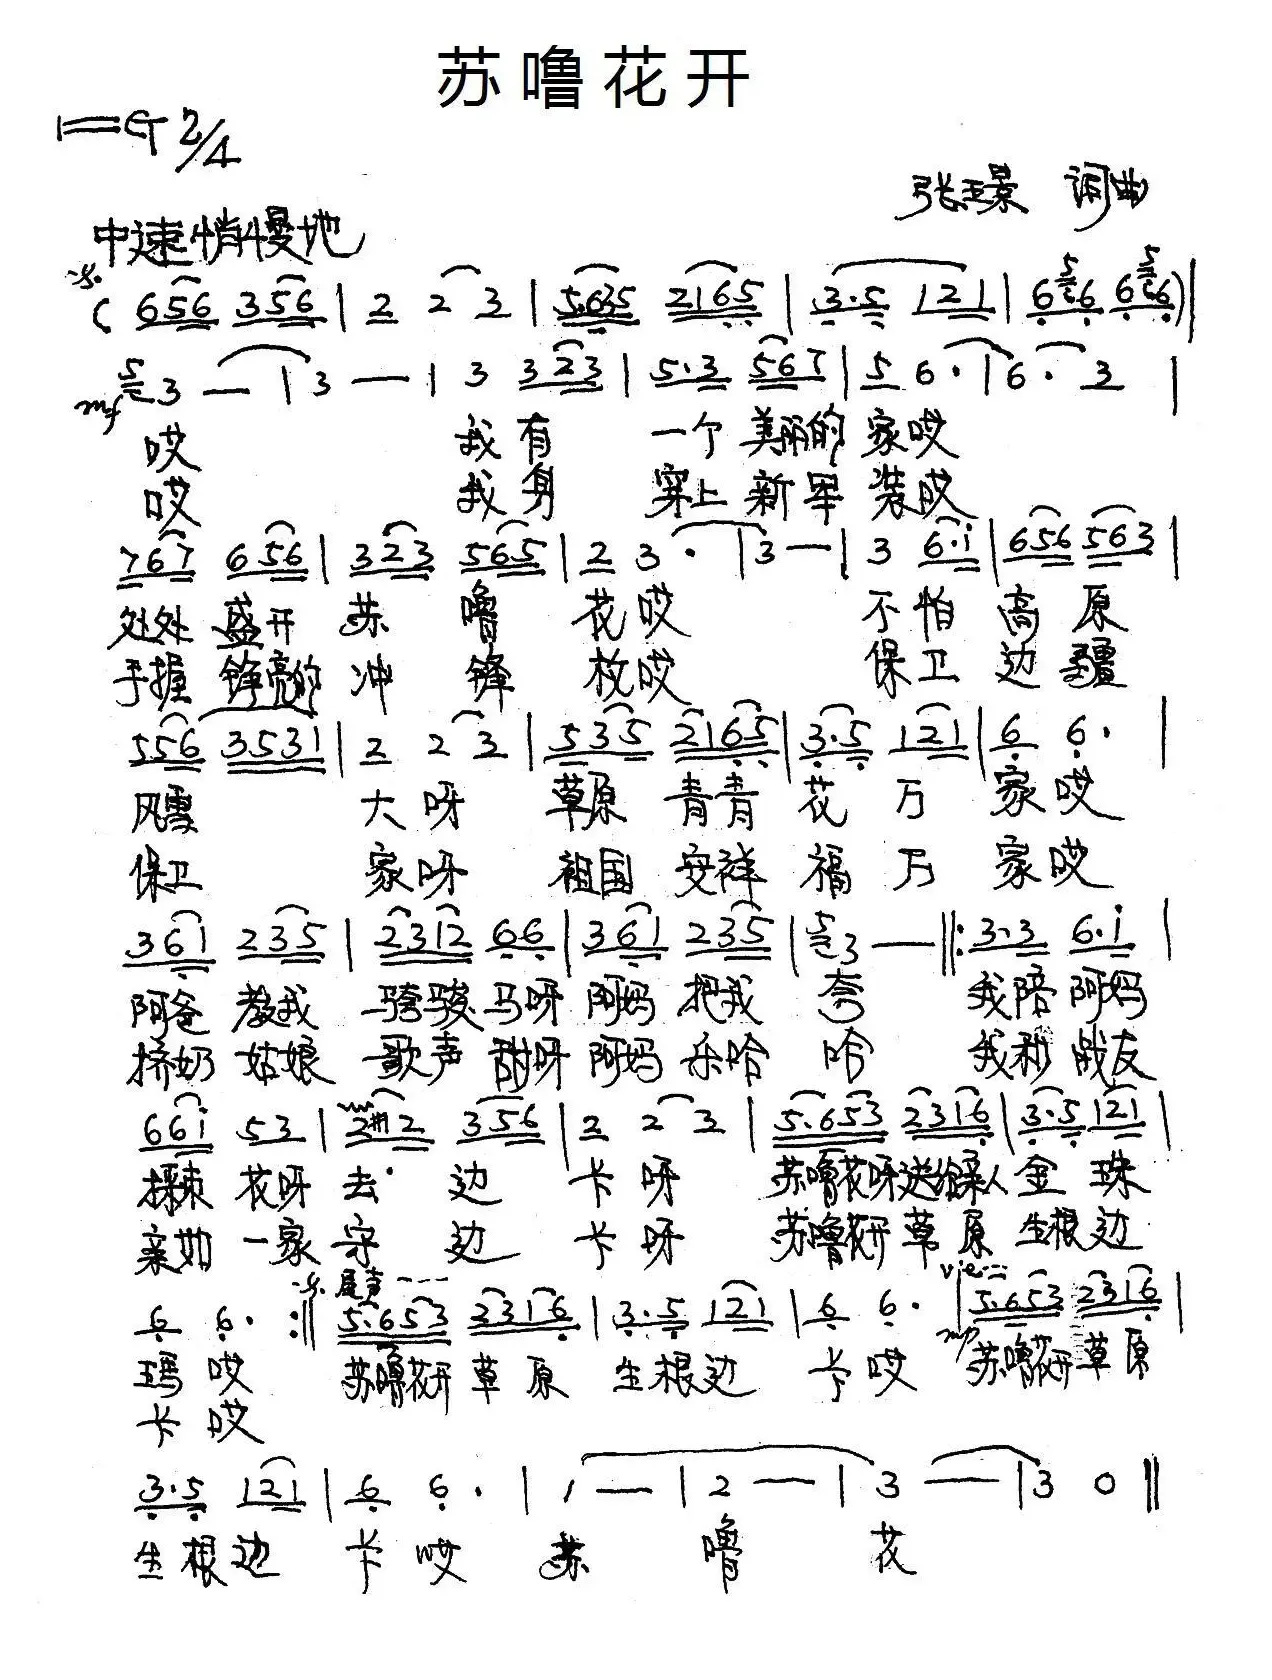 苏噜花开
1=G 2/4
张玉景 词曲
中速稍慢地
( 656 356 | 2 2 3 | 5.635 2165 | 3.5 121 | 6 5 6 6 6 5 6 6 ) |
mf 5 3 — | 3 — | 3 323 | 5.3 567 | 5 6. | 6. 3 |
哎 我有 一个 美丽的 家哎
哎 我身 穿上 新军 装哎
767 656 | 323 565 | 2 3. | 3 — | 3 6.i | 656 563 |
处处 盛开 苏 噜 花哎 不怕 高 原
手握 铮亮的 冲 锋 枚哎 保卫 边 疆
556 3531 | 2 2 3 | 535 2165 | 3.5 121 | 6 6. |
风雪 大呀 草原 青青 花 万 家哎
保卫 家呀 祖国 安祥 福 万 家哎
361 235 | 2312 66 | 361 235 | 5 3 — |: 3.3 6.i |
阿爸 教我 骑骏 马呀 阿妈 把我 夸 我陪 阿妈
挤奶 姑娘 歌声 甜呀 阿妈 乐哈 哈 我和 战友
66i 53 | 2 2 356 | 2 2 3 | 5.653 2316 | 3.5 121 |
採束 花呀 去 边 卡呀 苏噜花呀 送给亲人 金 珠
亲如 一家 守 边 卡呀 苏噜花开 草 原 生根 边
6 6. :| 尾声 5.653 2316 | 3.5 121 | 6 6. | 5.653 2316 |
玛哎 苏噜花开 草 原 生根 边 卡哎 mp 苏噜花开 草 原
卡哎
3.5 121 | 6 6. | 1 — | 2 — | 3 — | 3 0 ‖
生根 边 卡哎 苏 噜 花